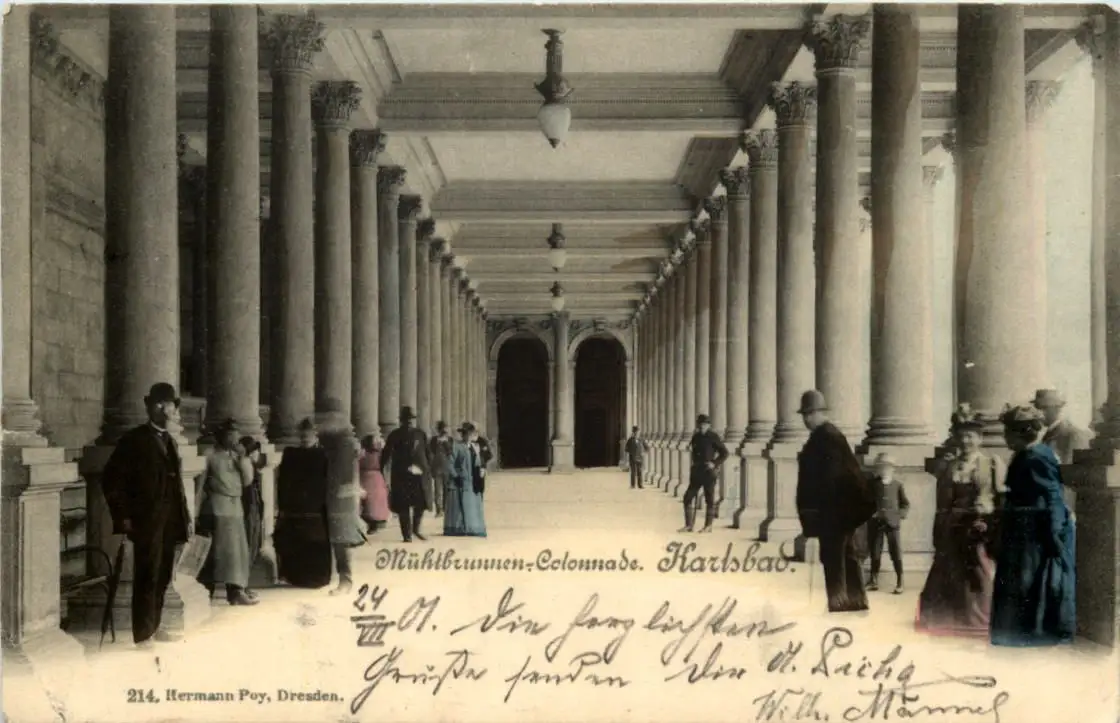 Mühlbrunnen-Colonnade. Karlsbad.
24/VII 01. Die herzlichsten
Grüße senden Dir A.
Wilh. Männel
214. Hermann Poy, Dresden.